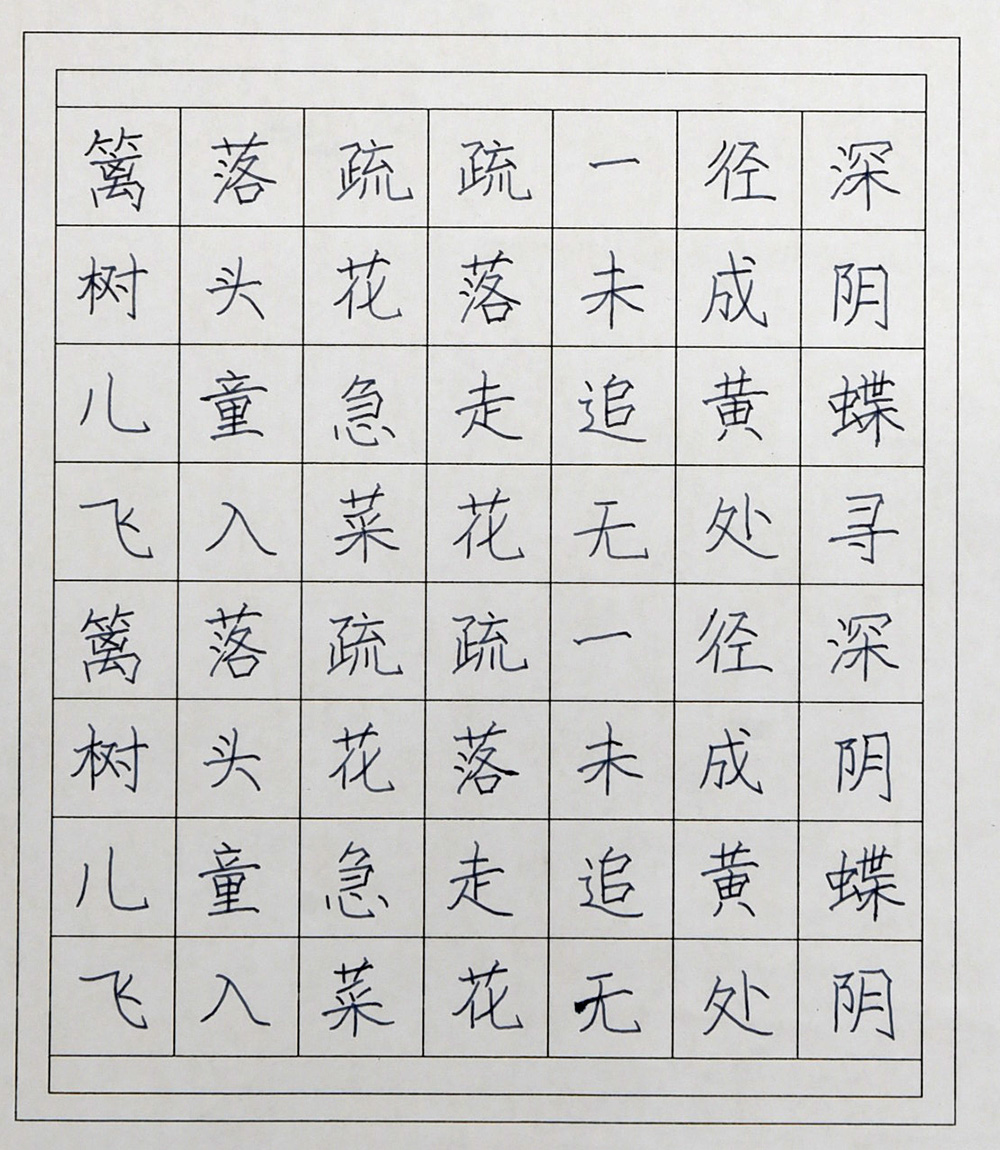 篱落疏疏一径深
树头花落未成阴
儿童急走追黄蝶
飞入菜花无处寻
篱落疏疏一径深
树头花落未成阴
儿童急走追黄蝶
飞入菜花无处阴